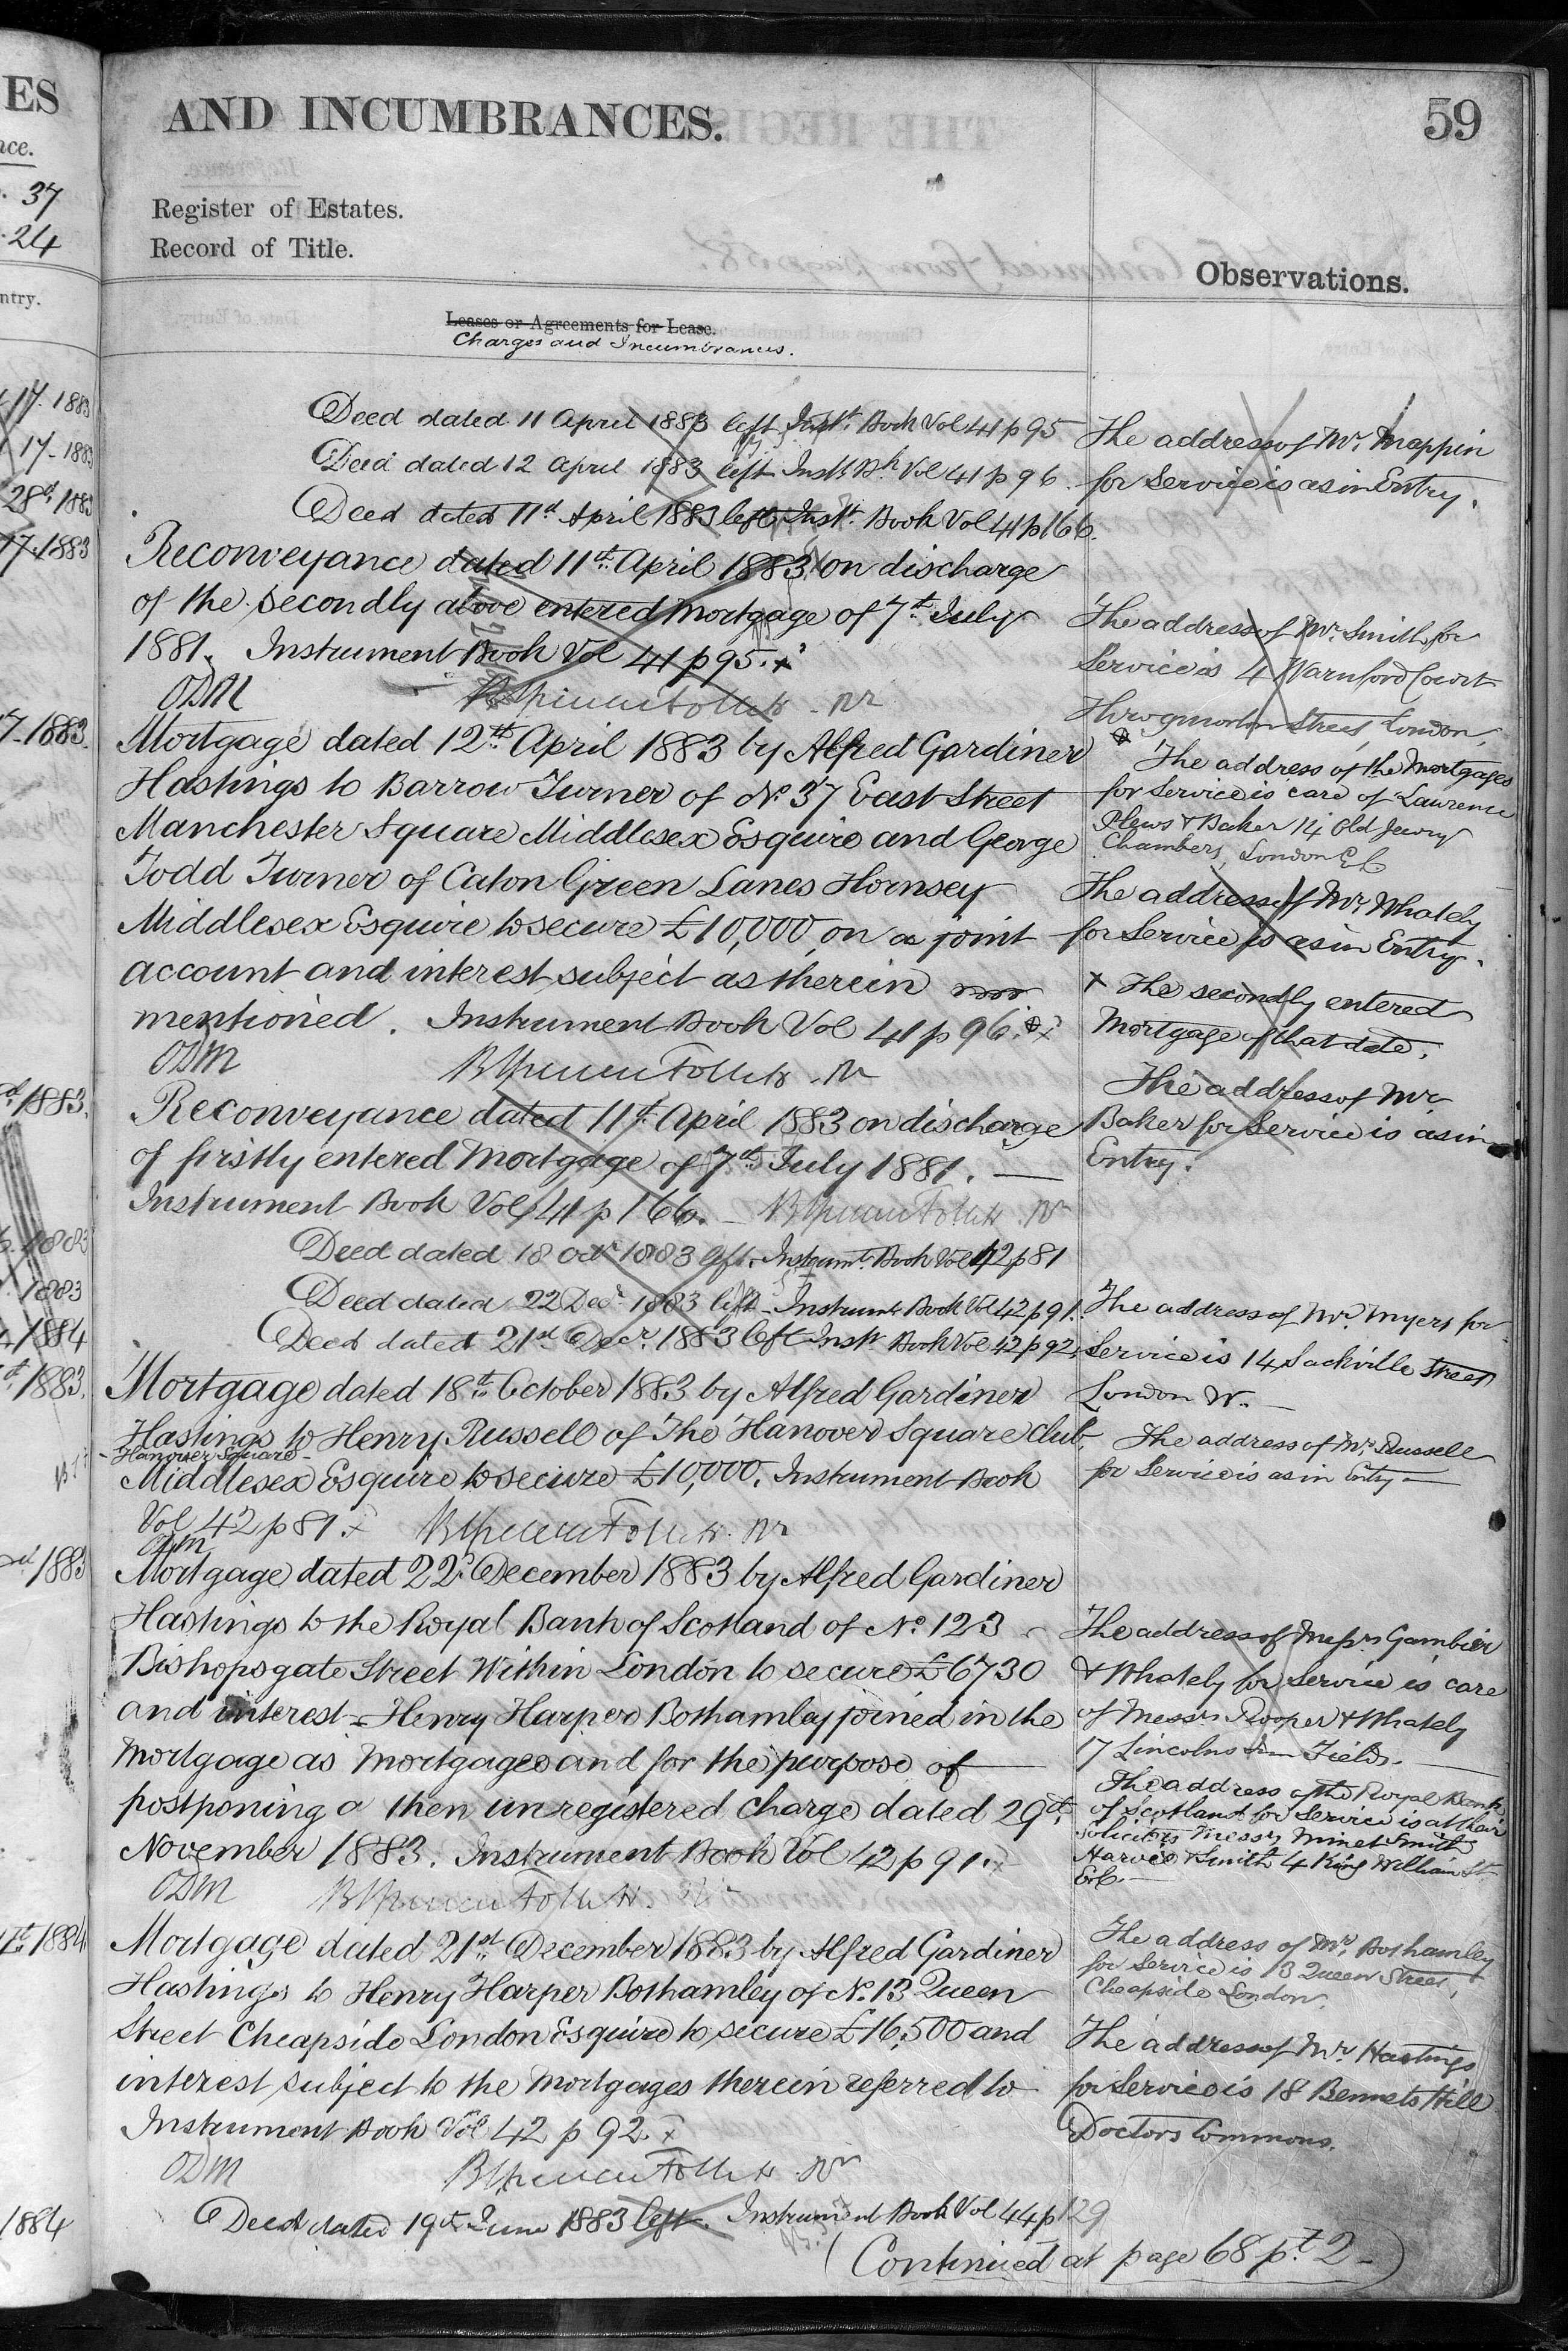 ES
AND INCUMBRANCES.
59
nce.
37
24
Register of Estates.
Record of Title.
Observations.
ntry.
Leases or Agreements for Lease.
Charges and Incumbrances.
17. 1883
17 - 1883
28th 1883
17. 1883
7. 1883
1883.
1883
1883
1884
1883.
1883
1884
1884
Deed dated 11 April 1883 left Instt. Book Vol 41 p 95
Deed dated 12 April 1883 left Instt Bk Vol 41 p 96.
Deed dated 11th April 1883 left Instt. Book Vol 41 p 166.
Reconveyance dated 11th April 1883 on discharge
of the secondly above entered mortgage of 7th July
1881. Instrument Book Vol 41 p 95. x
ODM
Mortgage dated 12th April 1883 by Alfred Gardiner
Hastings to Barrow Turner of No. 37 East Street
Manchester Square Middlesex Esquire and George
Todd Turner of Caton Green Lanes Hornsey
Middlesex Esquire to secure £10,000 on a joint
account and interest subject as therein
mentioned. Instrument Book Vol 41 p 96.
ODM
Reconveyance dated 11th April 1883 on discharge
of firstly entered Mortgage of 7th July 1881. —
Instrument Book Vol 41 p 166. —
Deed dated 18 Octr 1883 left. Instrumt. Book Vol 42 p 81
Deed dated 22 Decr 1883 left - Instrumt Book Vol 42 p 91.
Deed dated 21st Decr. 1883 left Instt. Book Vol 42 p 92.
Mortgage dated 18th October 1883 by Alfred Gardiner
Hastings to Henry Russell of The Hanover Square Club
- Hanover Square -
Middlesex Esquire to secure £10,000. Instrument Book
Vol 42 p 81. x
ODM
Mortgage dated 22d December 1883 by Alfred Gardiner
Hastings to the Royal Bank of Scotland of No. 123
Bishopsgate Street Within London to secure £6730
and interest - Henry Harper Bothamley joined in the
mortgage as Mortgagee and for the purpose of
postponing a then unregistered charge dated 29th
November 1883. Instrument Book Vol 42 p 91. x
ODM
Mortgage dated 21st December 1883 by Alfred Gardiner
Hastings to Henry Harper Bothamley of No. 13 Queen
Street Cheapside London Esquire to secure £16,500 and
interest subject to the Mortgages therein referred to
Instrument Book Vol 42 p 92. x
ODM
Deed dated 19th June 1883 left. Instrument Book Vol 44 p 129
(Continued at page 68 pt. 2 -)
The address of Mr. Mappin
for Service is as in Entry.
The address of Mr. Smith for
Service is 4 Warnford Court
Throgmorton Street, London.
The address of the Mortgagees
for Service is care of Lawrence
Plews & Baker 14 Old Jewry
Chambers, London E.C
The address of Mr. Whately
for Service is as in Entry.
x The secondly entered
Mortgage of that date.
The address of Mr.
Baker for Service is as in
Entry.
The address of Mr. Myers for
Service is 14 Sackville Street
London W. —
The address of Mr. Russell
for Service is as in Entry —
The address of Messrs Gambier
& Whately for Service is care
of Messrs Rooper & Whately
17 Lincolns Inn Fields. —
The address of the Royal Bank
of Scotland for Service is at their
Solicitors Messrs Minet Smith
Harvie & Smith 4 King William St
E.C. —
The address of Mr. Bothamley
for Service is 13 Queen Street,
Cheapside London.
The address of Mr. Hastings
for Service is 18 Bennets Hill
Doctors Commons.